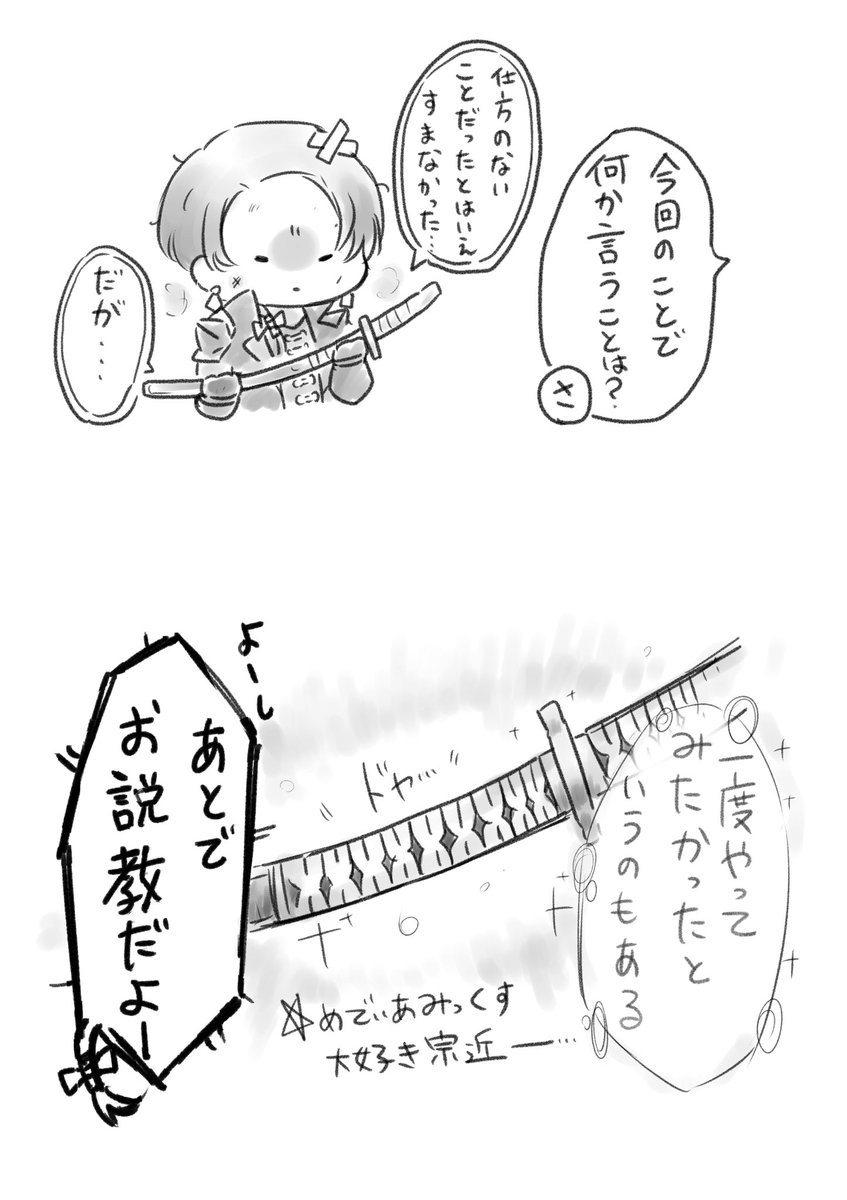 今回のことで
何か言うことは?
さ
仕方のない
ことだったとはいえ
すまなかった…
だが…
一度やって
みたかったと
いうのもある
ドヤ…
めでぃあみっくす
大好き宗近ー…
よーし
あとで
お説教だよー